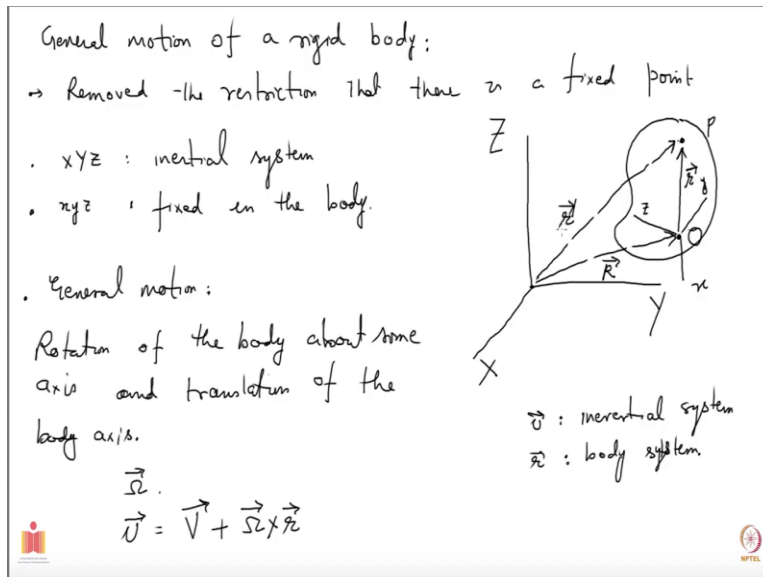 General motion of a rigid body:
→ Removed the restriction that there is a fixed point
. XYZ : inertial system
. xyz : fixed in the body.
. General motion:
Rotation of the body about some
axis and translation of the
body axis.
Ω⃗ .
v⃗ = V⃗ + Ω⃗ × r⃗
Z
P
r⃗'
r⃗
y
z
O
R⃗
x
Y
X
v⃗ : inerertial system
r⃗ : body system.
NPTEL